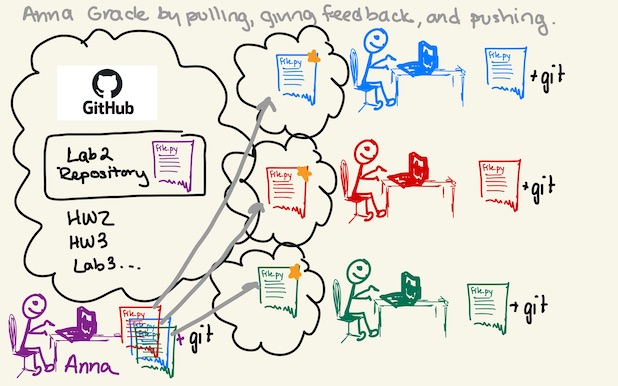 Anna Grade by pulling, giving feedback, and pushing.
GitHub
Lab2
Repository
File.py
HW2
HW3
Lab3...
File.py
+ git
File.py
+ git
File.py
+ git
File.py
File.py
File.py
+ git
Anna